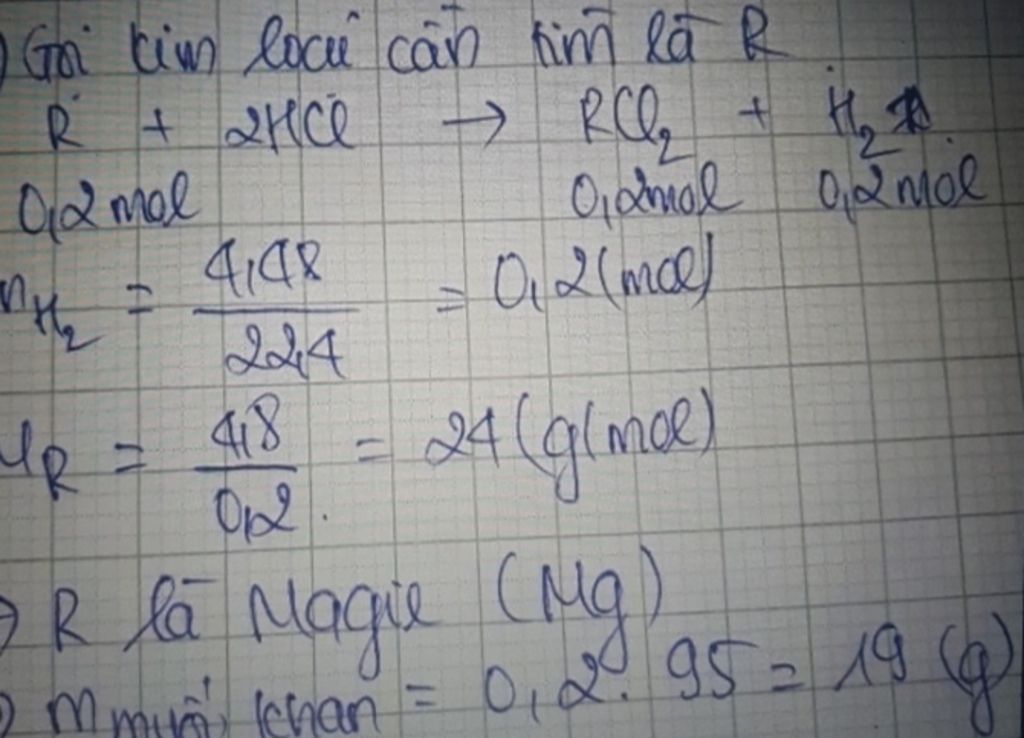 ) Gọi kim loại cần tìm là R.
R + 2HCl → RCl₂ + H₂
0,2mol 0,2mol 0,2mol
nH₂ = 4,48 / 22,4 = 0,2(mol)
MR = 4,8 / 0,2 = 24(g/mol)
⇒ R là Magie (Mg)
) m muối khan = 0,2. 95 = 19 (g)